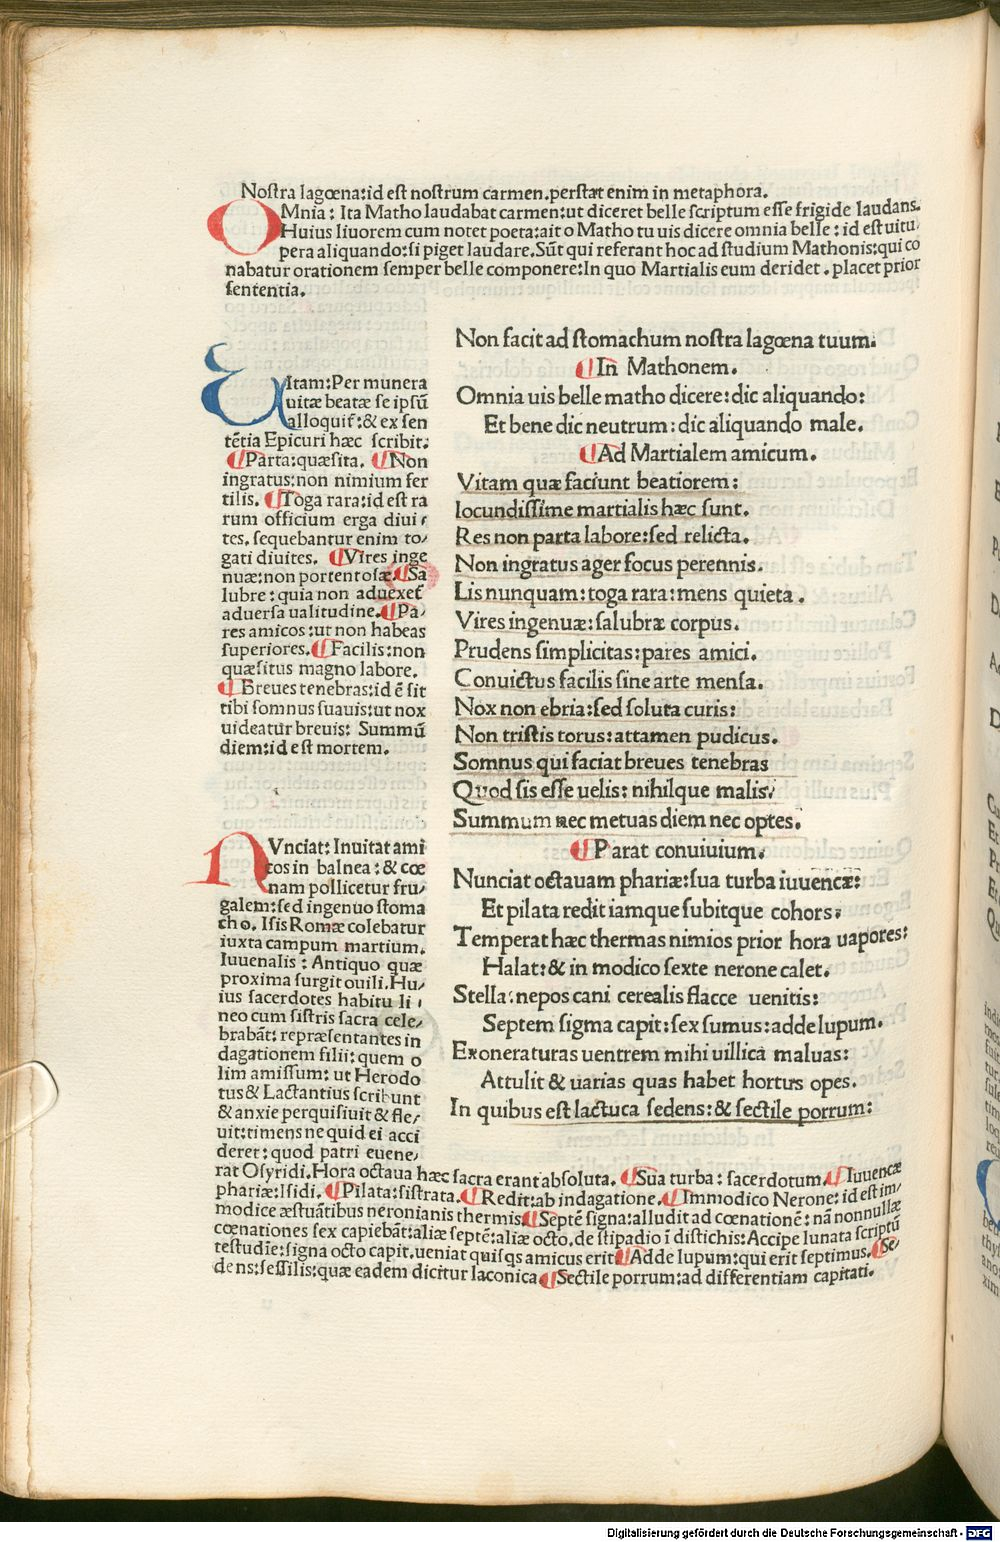 Noſtra lagœna:id eſt noſtrum carmen.perſtat enim in metaphora.
OMnia: Ita Matho laudabat carmen:ut diceret belle ſcriptum eſſe frigide laudans.
Huius liuorem cum notet poeta:ait o Matho tu uis dicere omnia belle: id eſt uitu
pera aliquando:ſi piget laudare. Sūt qui referant hoc ad ſtudium Mathonis:qui co
nabatur orationem ſemper belle componere:In quo Martialis eum deridet. placet prior
ſententia.
Non facit ad ſtomachum noſtra lagœna tuum.
¶In Mathonem.
Omnia uis belle matho dicere:dic aliquando:
Et bene dic neutrum: dic aliquando male.
¶Ad Martialem amicum.
Vitam quæ faciunt beatiorem:
Iocundiſſime martialis hæc ſunt.
Res non parta labore:ſed relicta.
Non ingratus ager focus perennis.
Lis nunquam: toga rara: mens quieta.
Vires ingenuæ: ſalubræ corpus.
Prudens ſimplicitas: pares amici.
Conuictus facilis ſine arte menſa.
Nox non ebria:ſed ſoluta curis:
Non triſtis torus: attamen pudicus.
Somnus qui faciat breues tenebras
Quod ſis eſſe uelis: nihilque malis:
Summum nec metuas diem nec optes.
¶Parat conuiuium.
Nunciat octauam phariæ:ſua turba iuuencæ:
Et pilata redit iamque ſubitque cohors:
Temperat hæc thermas nimios prior hora uapores:
Halat: & in modico ſexte nerone calet.
Stella: nepos cani cerealis flacce uenitis:
Septem ſigma capit: ſex ſumus: adde lupum.
Exoneraturas uentrem mihi uillica maluas:
Attulit & uarias quas habet hortus opes.
In quibus eſt lactuca ſedens: & ſectile porrum:
VItam: Per munera
uitæ beatæ ſe ipſū
alloquit̄: & ex ſen
tētia Epicuri hæc ſcribit:
¶Parta: quæſita. ¶Non
ingratus: non nimium fer
tilis. ¶Toga rara: id eſt ra
rum officium erga diui
tes. ſequebantur enim to
gati diuites. ¶Vires inge
nuæ: non portentoſæ. ¶Sa
lubre: quia non aduexet̄
aduerſa ualitudine. ¶Pa
res amicos: ut non habeas
ſuperiores. ¶Facilis: non
quæſitus magno labore.
¶Breues tenebras: id ē ſit
tibi ſomnus ſuauis: ut nox
uideatur breuis: Summū
diem: id eſt mortem.
NVnciat: Inuitat ami
cos in balnea: & cœ
nam pollicetur fru
galem: ſed ingenuo ſtoma
cho. Iſis Romæ colebatur
iuxta campum martium.
Iuuenalis: Antiquo quæ
proxima ſurgit ouili. Hu
ius ſacerdotes habitu li
neo cum ſiſtris ſacra cele
brabāt: repræſentantes in
dagationem filii: quem o
lim amiſſum: ut Herodo
tus & Lactantius ſcribunt
& anxie perquiſiuit & fle
uit: timens ne quid ei acci
deret: quod patri euene
rat Oſyridi. Hora octaua hæc ſacra erant abſoluta. ¶Sua turba: ſacerdotum. ¶Iuuencæ
phariæ: Iſidi. ¶Pilata: ſiſtrata. ¶Redit: ab indagatione. ¶Immodico Nerone: id eſt im
modice æſtuātibus neronianis thermis. ¶Septē ſigna: alludit ad cœnationē: nā nonnullæ
cœnationes ſex capiebāt: aliæ ſeptē: aliæ octo. de ſtipadio ī diſtichis: Accipe lunata ſcriptū
teſtudīe: ſigna octo capit. ueniat quiſqs amicus erit. ¶Adde lupum: qui erit ſeptimus. ¶Se
dens: ſeſſilis: quæ eadem dicitur laconica. ¶Sectile porrum: ad differentiam capitati.
Digitalisierung gefördert durch die Deutsche Forschungsgemeinschaft - DFG